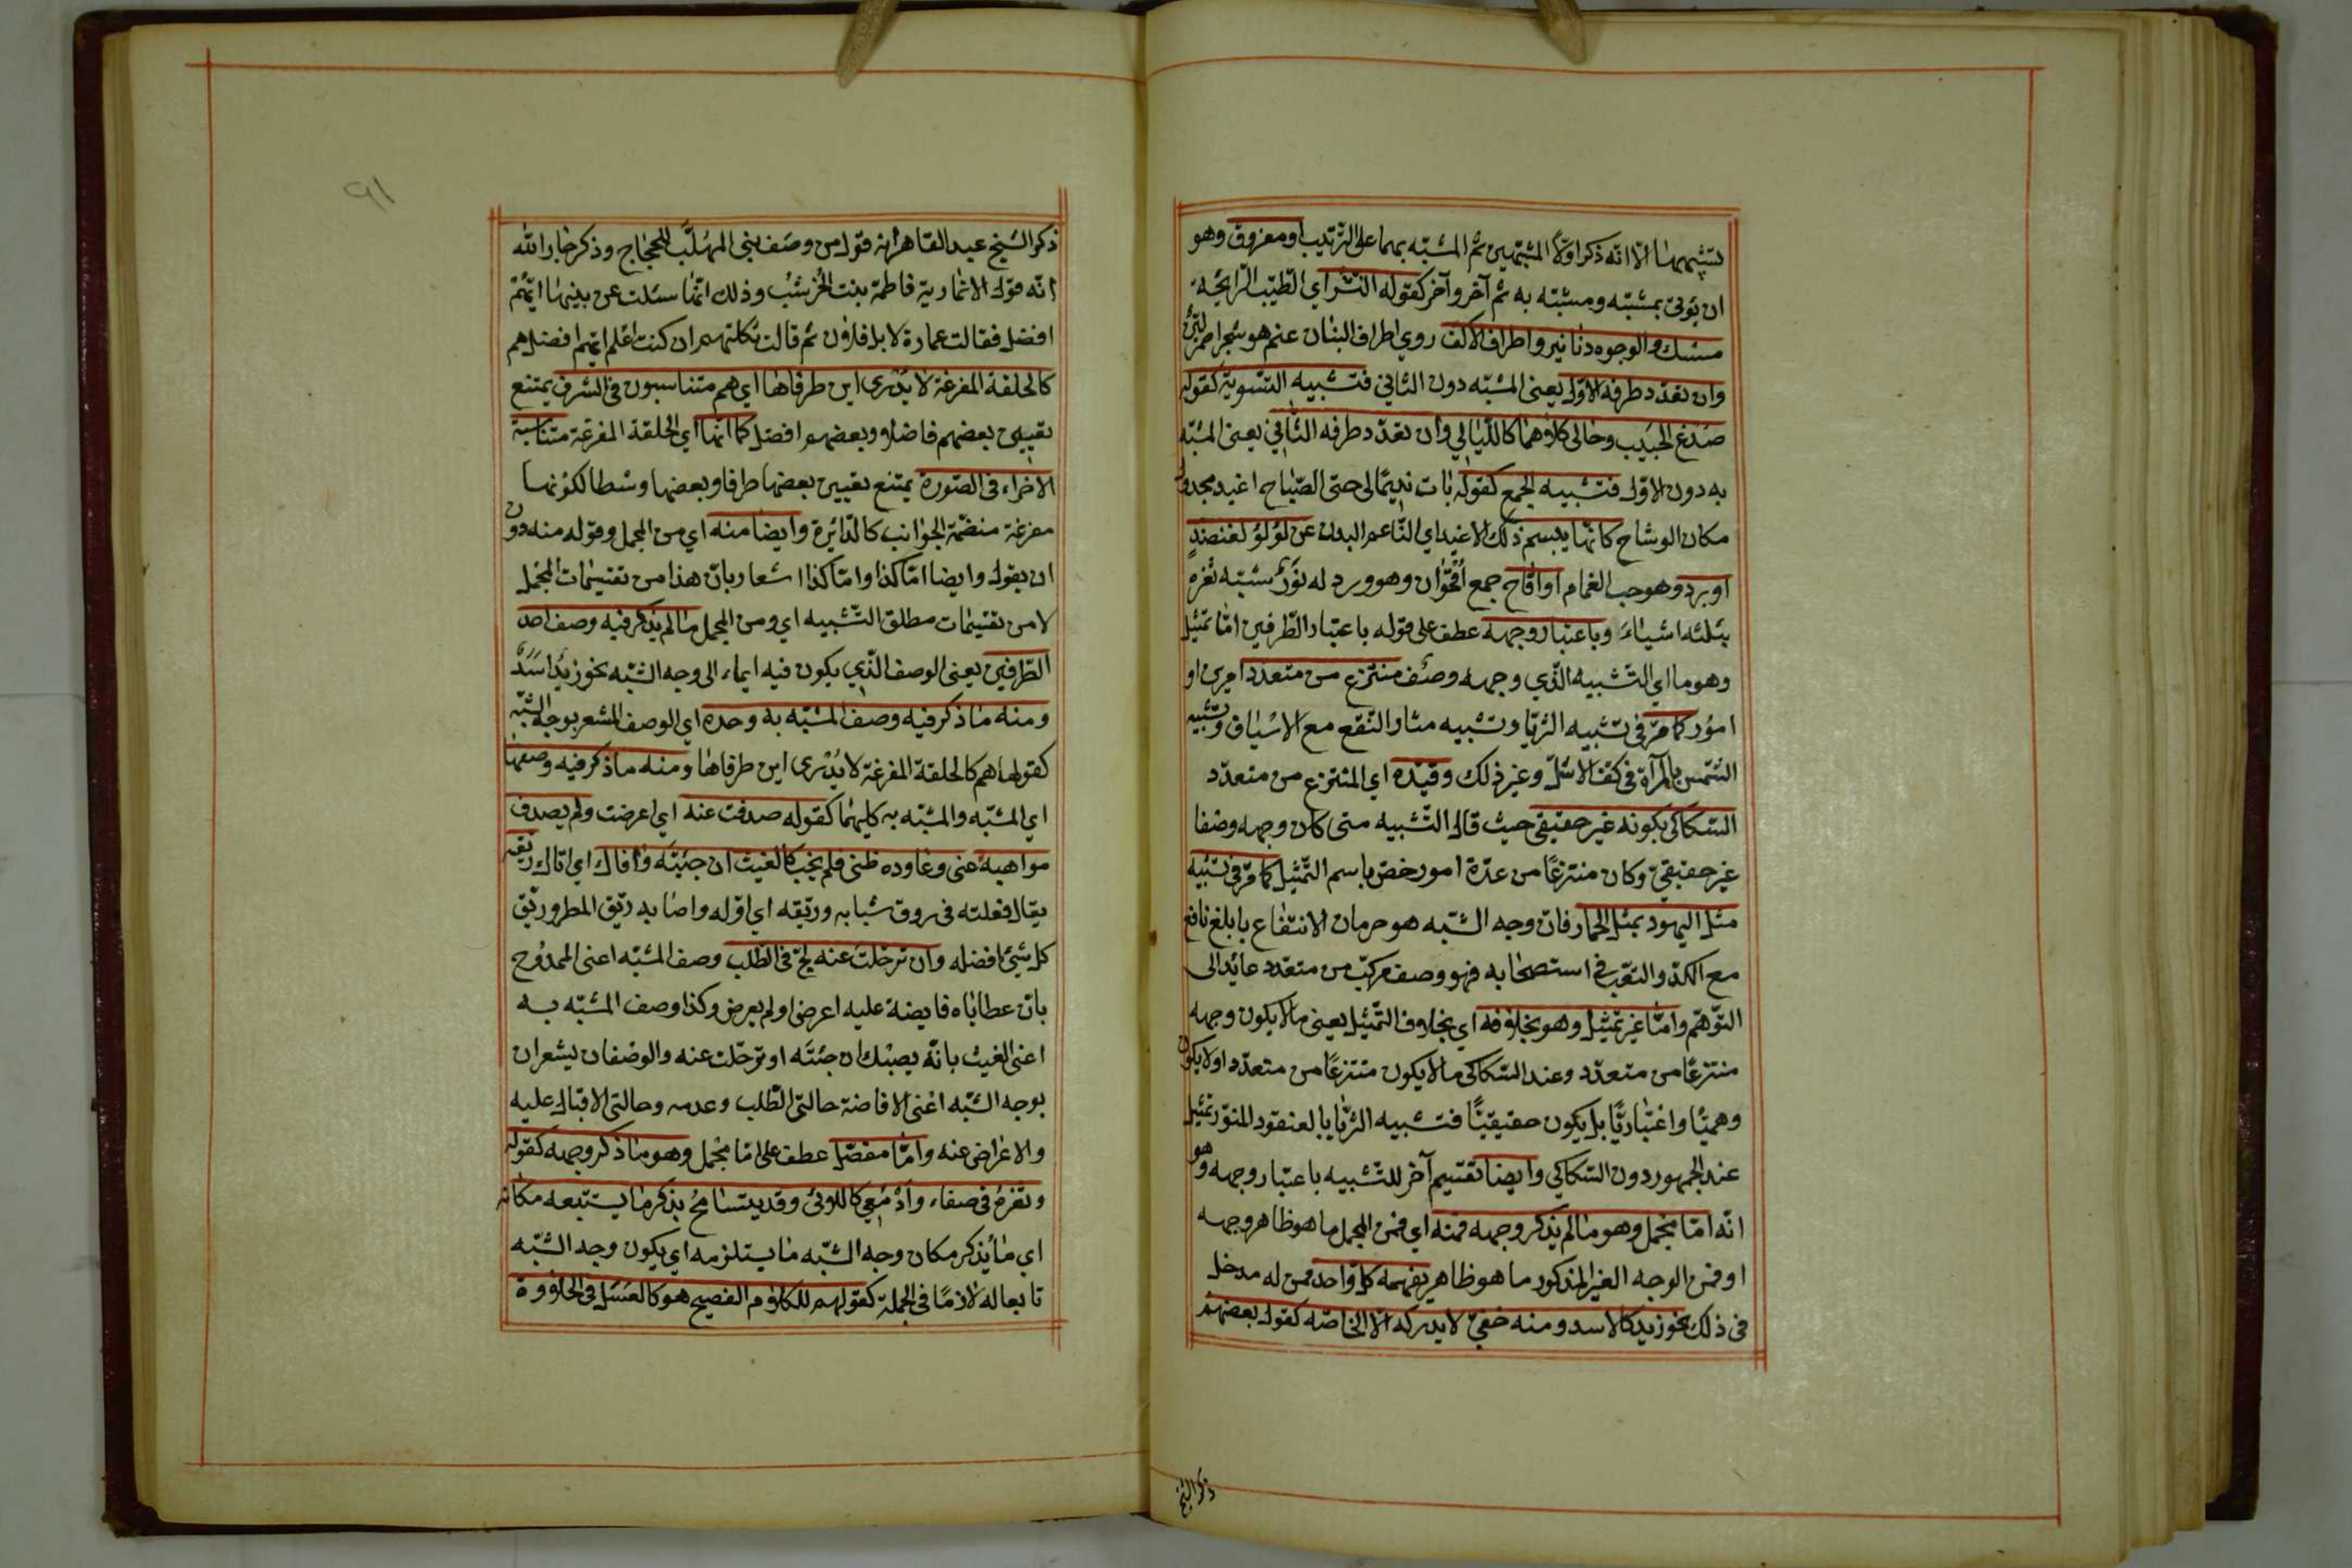 تشبيههما الا انه ذكر اولا المشبهين ثم المشبه بهما على الترتيب او مفروق وهو
ان يؤتى بمشبه ومشبه به ثم آخر وآخر كقوله النشر اي الطيب الرايحة
مسك والوجوه دنانير واطراف الاكف روي اطراف البنان عنم هو شجر احمر لين
وان تعدد طرفه الاول يعنى المشبه دون الثاني فتشبيه التسوية كقوله
صدغ الحبيب وحالى كلاهما كالليالي وان تعدد طرفه الثاني يعنى المشبه
به دون الاول فتشبيه الجمع كقوله بات نديمًا لى حتى الصباح اغيد مجدول
مكان الوشاح كانما يبسم ذلك الاغيد اي الناعم البدن عن لؤلؤ لغنضد
او برد وهو حب الغمام او اقاح جمع اقحوان وهو ورد له نور شبه ثغره
بثلثه اشياء وباعتبار وجهه عطف على قوله باعتبار الطرفين اما تمثيل
وهو ما اي التشبيه الذي وجهه وصف منتزع من متعدد امرين او
امور كما مر في تشبيه الثريا وتشبيه مثار النقع مع الاسياف وتشبيه
الشمس بالمرآة في كف الاشل وغير ذلك وقيده اي المنتزع من متعدد
السكاكى بكونه غير حقيقي حيث قال التشبيه متى كان وجهه وصفا
غير حقيقي وكان منتزعًا من عدة امور خص باسم التمثيل كما مر في تشبيه
مثل اليهود بمثل الحمار فان وجه الشبه هو حرمان الانتفاع بابلغ نافع
مع الكد والتعب في استصحابه فهو وصف مركب من متعدد عائد الى
التوهم واما غير تمثيل وهو بخلافه اي بخلاف التمثيل يعنى ما لا يكون وجهه
منتزعًا من متعدد وعند السكاكى ما لا يكون منتزعًا من متعدد او لا يكون
وهميًا واعتباريًا بل يكون حقيقيًا فتشبيه الثريا بالعنقود المنور تمثيل
عند الجمهور دون السكاكي وايضا تقسيم آخر للتشبيه باعتبار وجهه وهو
انه اما مجمل وهو ما لم يذكر وجهه فمنه اي فمن المجمل ما هو ظاهر وجهه
او فمن الوجه الغير المذكور ما هو ظاهر يفهمه كل واحد ممن له مدخل
في ذلك نحو زيد كالاسد ومنه خفي لا يدركه الا الخاصه كقول بعضهم
ذكر الشيخ
٩١
ذكر الشيخ عبد القاهر انه قول من وصف بنى المهلب للحجاج وذكر جار الله
انه قول الانمارية فاطمة بنت الخرشب وذلك انها سئلت عن بنيها ايهم
افضل فقالت عمارة لا بل فلان ثم قالت ثكلتهم ان كنت اعلم ايهم افضل هم
كالحلقة المفرغة لا يدرى اين طرفاها اي هم متناسبون في الشرف يمتنع
تعيين بعضهم فاضلا وبعضهم افضل كما انها اي الحلقة المفرغة متناسبة
الاجزاء في الصورة يمتنع تعيين بعضها طرفا وبعضها وسطا لكونها
مفرغة منضمة الجوانب كالدائرة وايضا منه اي من المجمل وقوله منه دون
ان يقول وايضا اما كذا واما كذا اشعار بان هذا من تقسيمات المجمل
لا من تقسيمات مطلق التشبيه اي ومن المجمل ما لم يذكر فيه وصف احد
الطرفين يعنى الوصف الذي يكون فيه ايماء الى وجه الشبه نحو زيد اسد
ومنه ما ذكر فيه وصف المشبه به وحده اي الوصف المشعر بوجه الشبه
كقولها هم كالحلقة المفرغة لا يدرى اين طرفاها ومنه ما ذكر فيه وصفهما
اي المشبه والمشبه به كليهما كقوله صدفت عنه اي اعرضت ولم يصدف
مواهبه عنى وعاوده ظنى فلم يخب كالغيث ان جئته وافاك اي اتاك ريقه
يقال فعلته في روق شبابه وريقه اي اوله واصابه ريق المطر وريق
كل شئ افضله وان ترحلت عنه لج في الطلب وصف المشبه اعنى الممدوح
بان عطاياه فايضة عليه اعرض او لم يعرض وكذا وصف المشبه به
اعنى الغيث بانه يصبك ان جئته او ترحلت عنه والوصفان يشعران
بوجه الشبه اعنى الافاضة حالتى الطلب وعدمه وحالتى الاقبال عليه
والاعراض عنه واما مفصل عطف على اما مجمل وهو ما ذكر وجهه كقوله
وثغره في صفاء وادمعي كاللؤلئ وقد يتسامح بذكر ما يستتبعه مكانه
اي ما يذكر مكان وجه الشبه ما يستلزمه اي يكون وجه الشبه
تابعا له لازمًا في الجملة كقولهم للكلام الفصيح هو كالعسل في الحلاوة